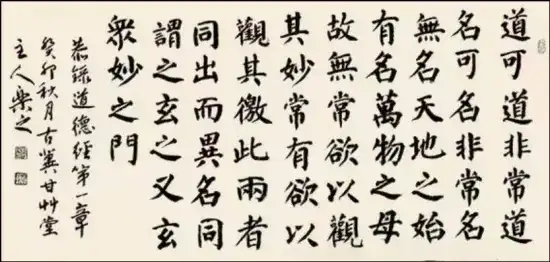 道可道非常道
名可名非常名
無名天地之始
有名萬物之母
故無常欲以觀
其妙常有欲以
觀其徼此兩者
同出而異名同
謂之玄之又玄
眾妙之門
恭錄道德經第一章
癸卯秋月古冀甘艸堂
主人樂之